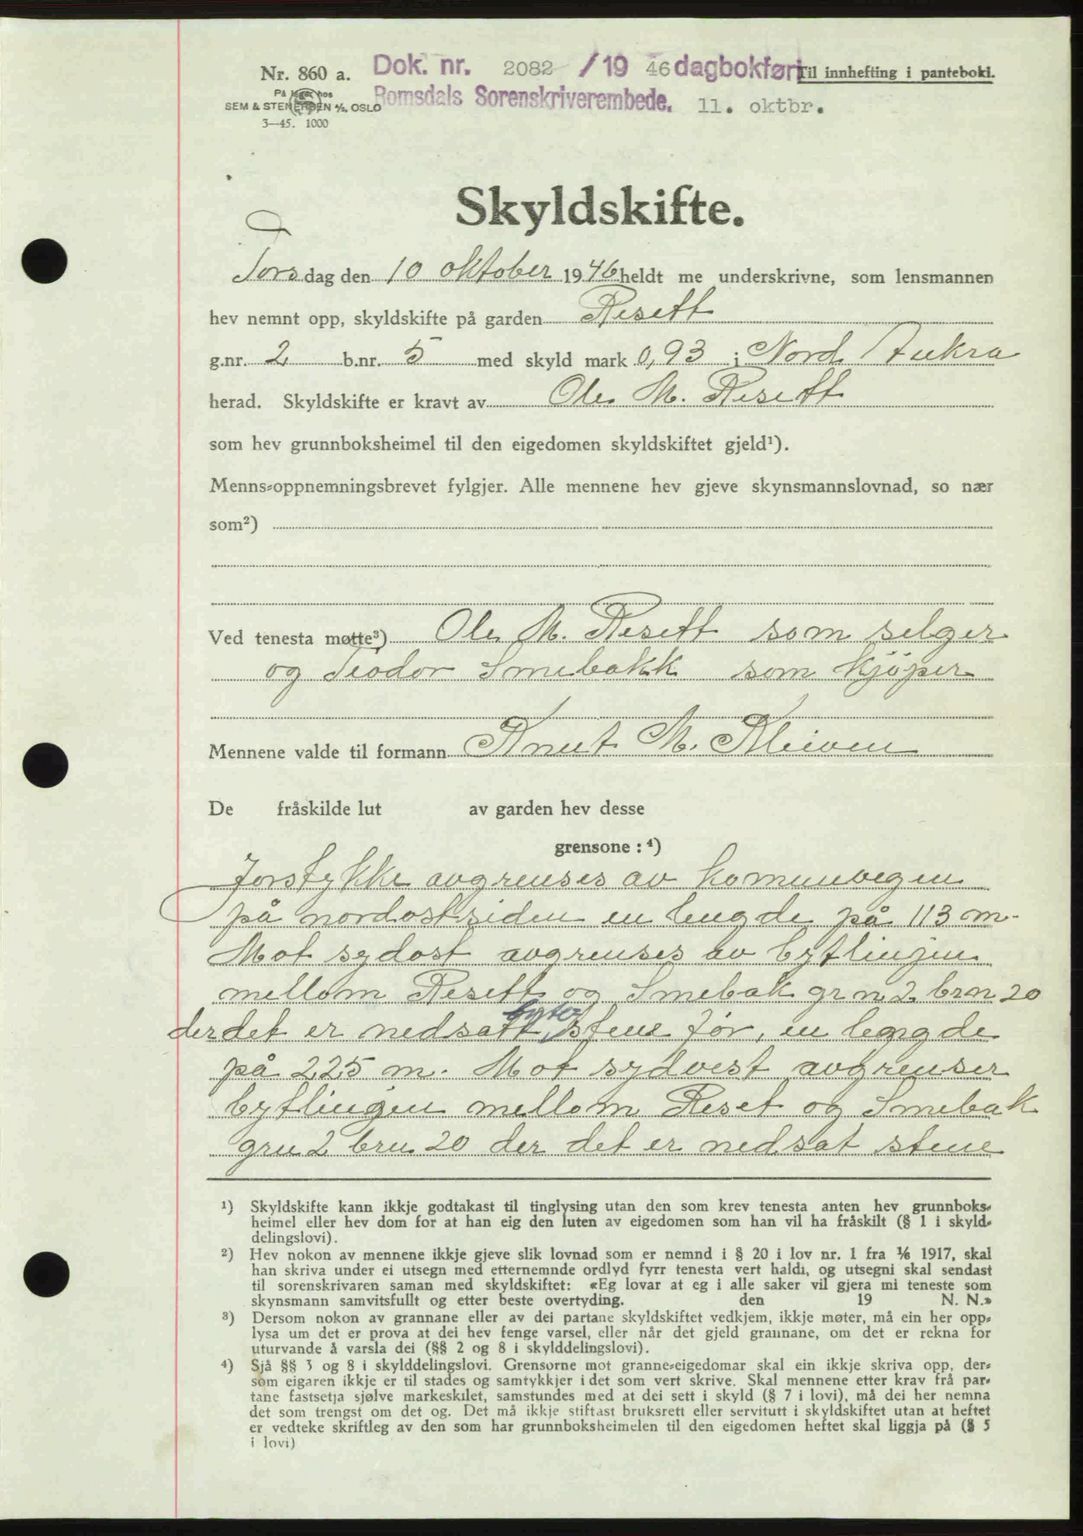 Nr. 860 a. Dok. nr. 2082 /19 46 dagbokført Til innhefting i panteboki.
På hos
SEM & STENERSEN A/S, OSLO Romsdals Sorenskriverembede. 11. oktbr.
3—45. 1000
Skyldskifte.
Torsdag den 10 oktober 1946 heldt me underskrivne, som lensmannen
hev nemnt opp, skyldskifte på garden Resett
g.nr. 2 b.nr. 5 med skyld mark 0,93 i Nord Aukra
herad. Skyldskifte er kravt av Ole M. Resett
som hev grunnboksheimel til den eigedomen skyldskiftet gjeld¹).
Menns-oppnemningsbrevet fylgjer. Alle mennene hev gjeve skynsmannslovnad, so nær
som²)
Ved tenesta møtte³) Ole M. Resett som selger
og Teodor Smebakk som kjøper
Mennene valde til formann Knut M. Kleiven
De fråskilde lut av garden hev desse
grensone: ⁴)
Jorstykke avgrenses av komunvegen
på nordostsiden en lengde på 113 m.
Mot sydost avgrenses av bytlinjen
mellom Resett og Smebak grn 2 brn 20
der det er nedsatt bytes stene før, en lengde
på 225 m. Mot sydvest avgrenser
bytlingen mellom Reset og Smebak
grn 2 brn 20 der det er nedsat stene
¹) Skyldskifte kann ikkje godtakast til tinglysing utan den som krev tenesta anten hev grunnboks-
heimel eller hev dom for at han eig den luten av eigedomen som han vil ha fråskilt (§ 1 i skyld-
delingslovi).
²) Hev nokon av mennene ikkje gjeve slik lovnad som er nemnd i § 20 i lov nr. 1 fra 1/6 1917, skal
han skriva under ei utsegn med etternemnde ordlyd fyrr tenesta vert haldi, og utsegni skal sendast
til sorenskrivaren saman med skyldskiftet: «Eg lovar at eg i alle saker vil gjera mi teneste som
skynsmann samvitsfullt og etter beste overtyding. den 19 N. N.»
³) Dersom nokon av grannane eller av dei partane skyldskiftet vedkjem, ikkje møter, må ein her opp-
lysa um det er prova at dei hev fenge varsel, eller når det gjeld grannane, om det er rekna for
uturvande å varsla dei (§§ 2 og 8 i skylddelingslovi).
⁴) Sjå §§ 3 og 8 i skylddelingslovi. Grensorne mot granne-eigedomar skal ein ikkje skriva opp, der-
som eigaren ikkje er til stades og samtykkjer i det som vert skrive. Skal mennene etter krav frå par-
tane fastsetja sjølve markeskilet, samstundes med at dei sett i skyld (§ 7 i lovi), må dei her nemna
det som trengst om det og. Det må ikkje stiftast bruksrett eller servitutt i skyldskiftet utan at heftet
er vedteke skriftleg av den som har grunnboksheimelen til den eigedomen heftet skal liggja på (§ 5
i lovi)